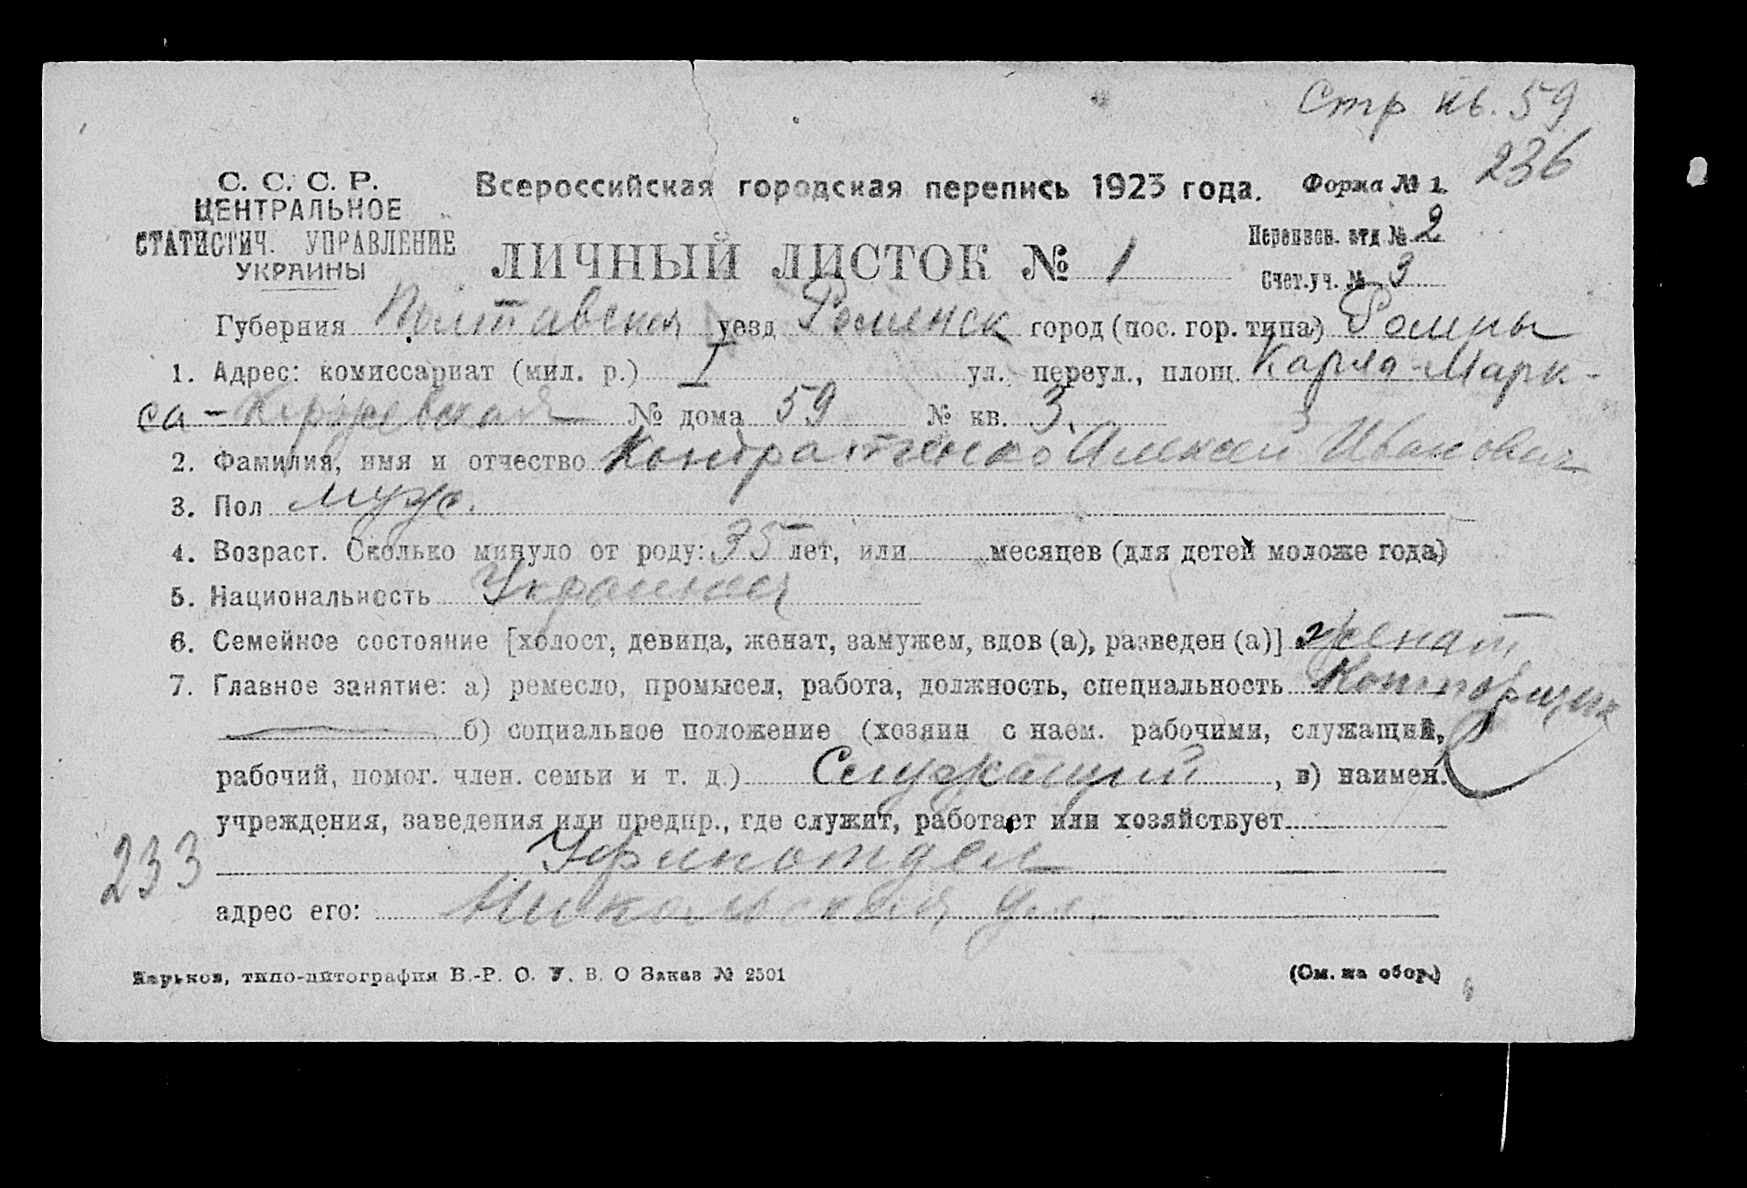 Стр кв. 59
236
С. С. С. Р.
ЦЕНТРАЛЬНОЕ
СТАТИСТИЧ. УПРАВЛЕНИЕ
УКРАИНЫ
Всероссийская городская перепись 1923 года.
Форма № 1.
ЛИЧНЫЙ ЛИСТОК № 1
Переписн. отд № 2
Счет.уч. № 3
Губерния Полтавская уезд Роменск город (пос. гор. типа) Ромны
1. Адрес: комиссариат (мил. р.) I ул., переул., площ. Карла-Марк-
са - № дома 59 № кв. 3.
2. Фамилия, имя и отчество Кондратенко Алексей Иванович
3. Пол муж.
4. Возраст. Сколько минуло от роду: 35 лет, или месяцев (для детей моложе года)
5. Национальность
6. Семейное состояние [холост, девица, женат, замужем, вдов (а), разведен (а)] женат
7. Главное занятие: а) ремесло, промысел, работа, должность, специальность Конторщик
б) социальное положение (хозяин с наем. рабочими, служащий,
рабочий, помог. член. семьи и т. д.) Служащий, в) наимен.
учреждения, заведения или предпр., где служит, работает или хозяйствует
Уфинотдел
233
адрес его: Никольская ул.
Харьков, типо-литография В.-Р. О. У. В. О Заказ № 2501
(См. на обор.)